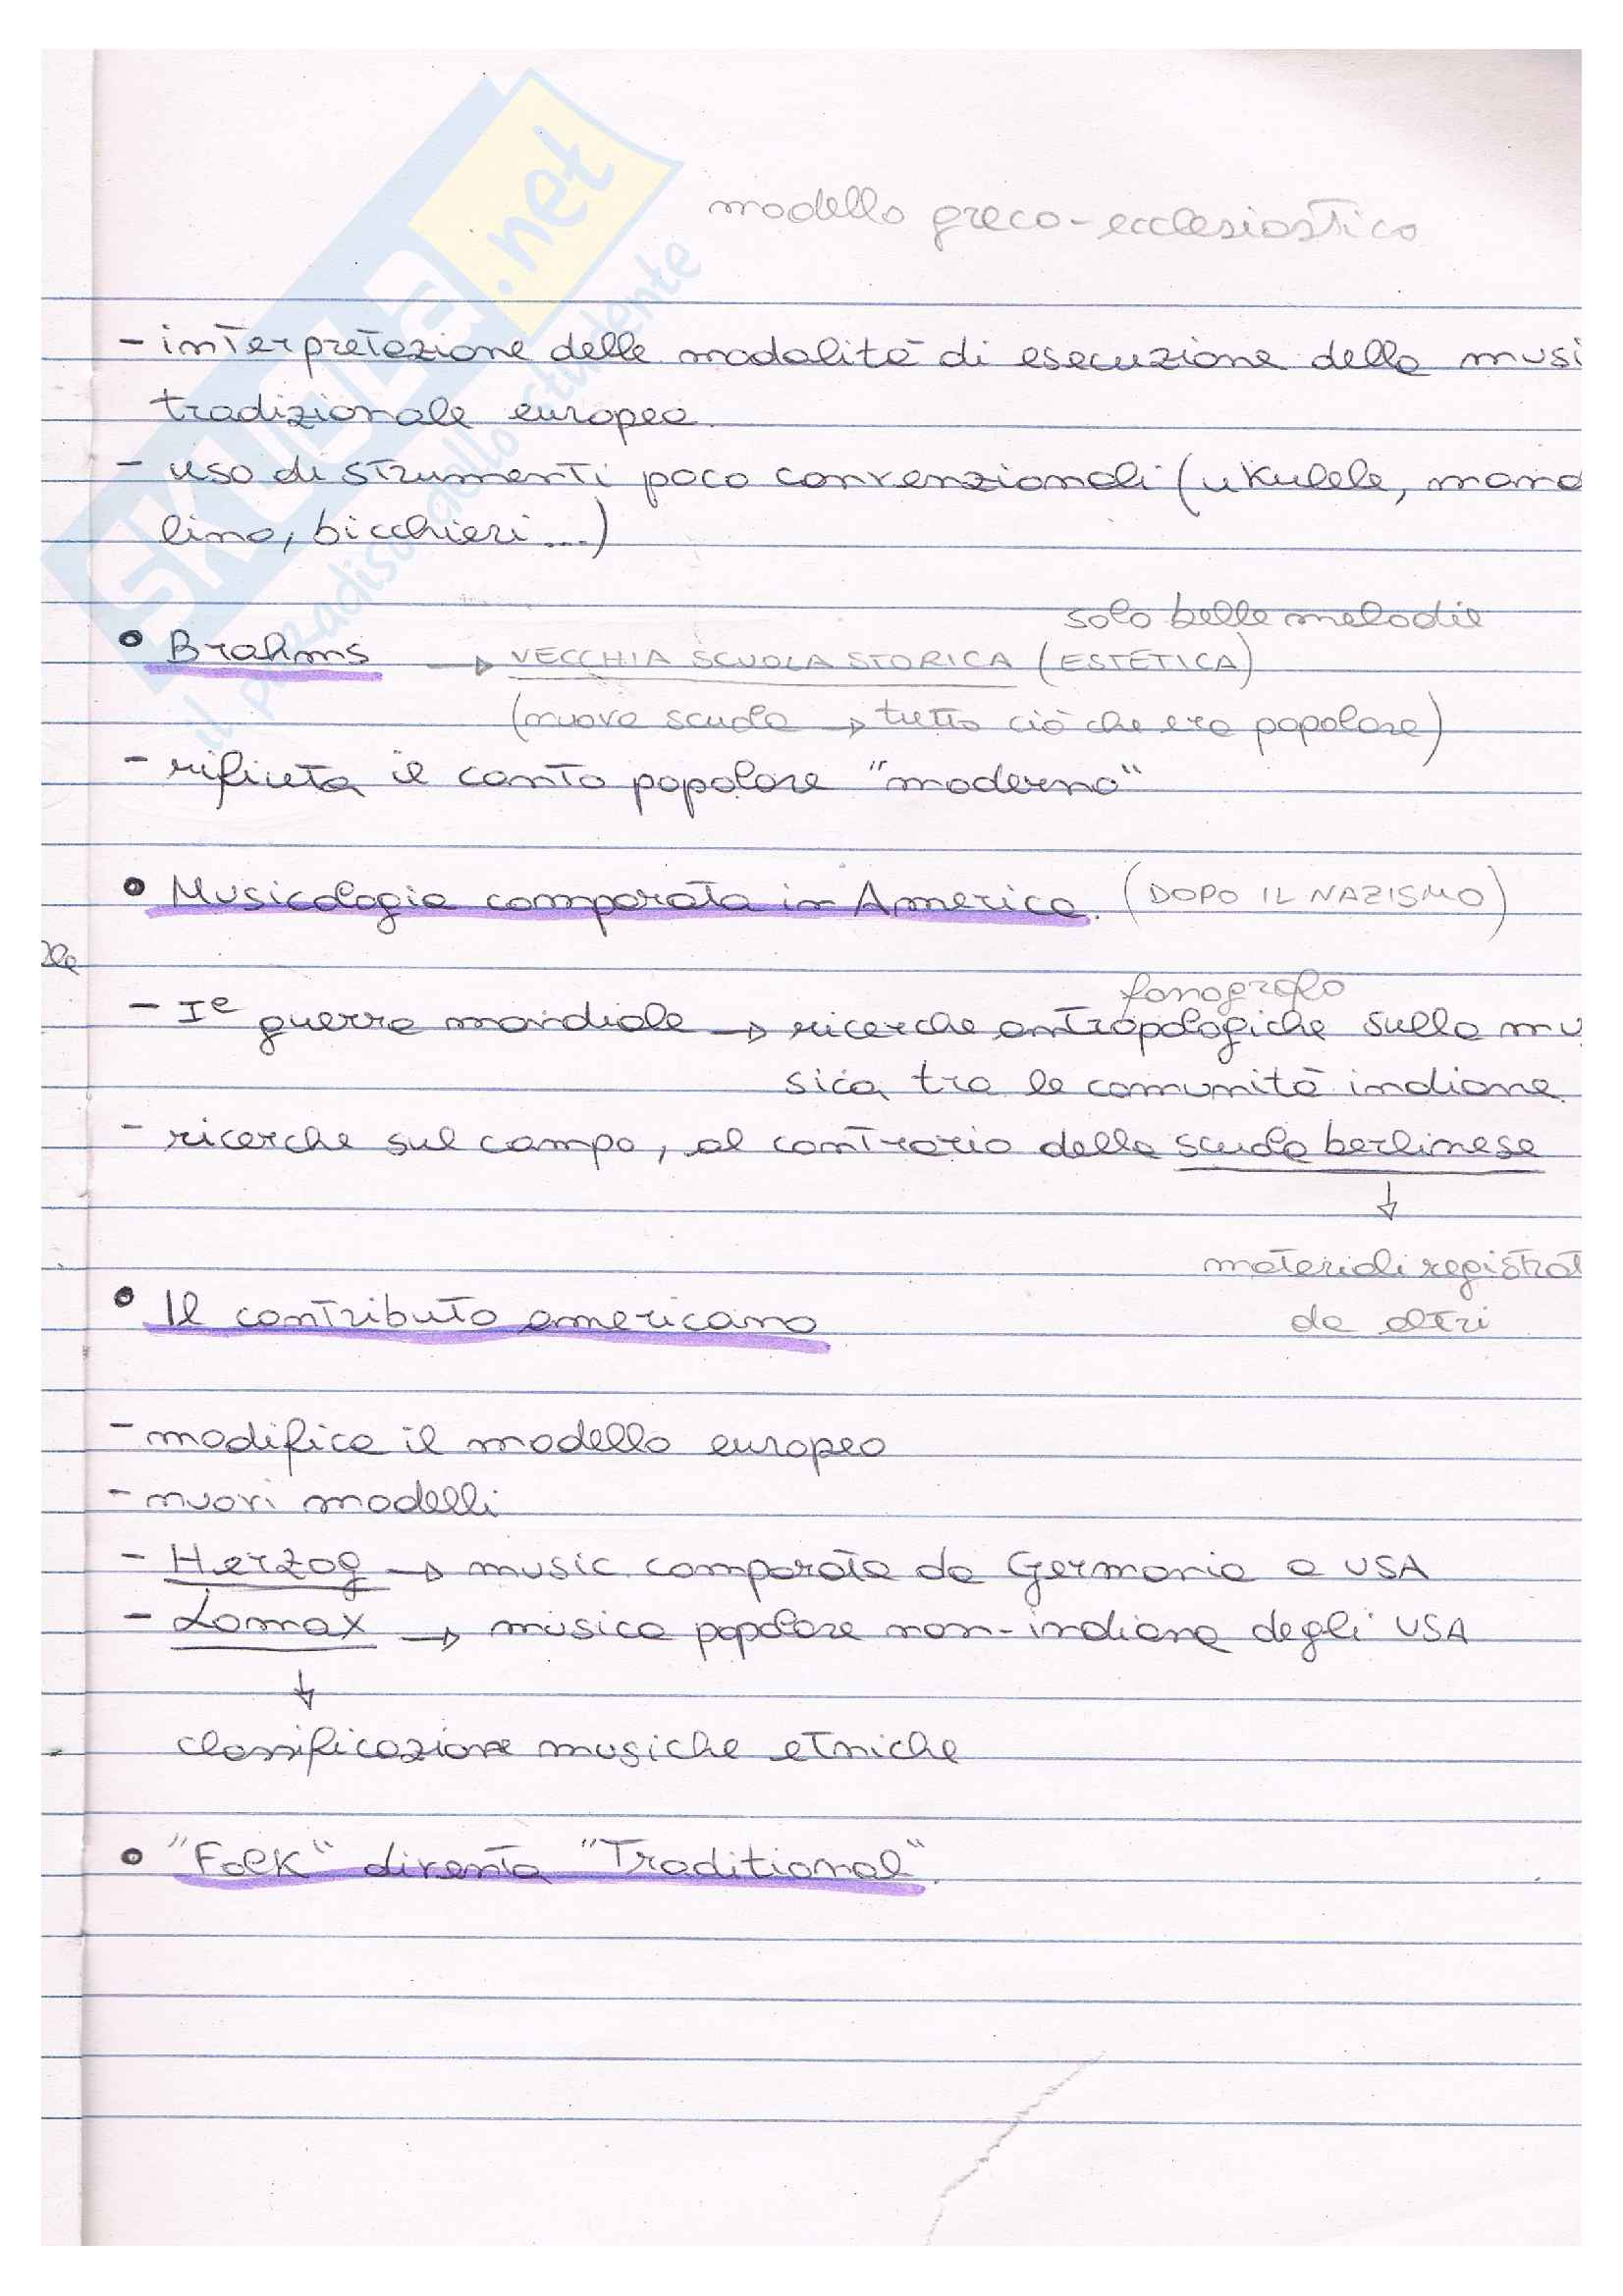 modello greco-ecclesiastico
- interpretazione delle modalità di esecuzione della musi
tradizionale europea.
- uso di strumenti poco convenzionali (ukulele, mando
lino, bicchieri...)
solo belle melodie
• Brahms → VECCHIA SCUOLA STORICA (ESTETICA)
(nuova scuola → tutto ciò che era popolare)
- rifiuta il canto popolare "moderno"
• Musicologia comparata in America. (DOPO IL NAZISMO)
fonografo
- Iᵉ guerra mondiale → ricerche antropologiche sulla mu
sica tra le comunità indiane.
- ricerche sul campo, al contrario della scuola berlinese
↓
materiali registrat
da altri
• Il contributo americano
- modifica il modello europeo
- nuovi modelli
- Herzog → music. comparata da Germania a USA
- Lomax → musica popolare non-indiana degli USA
↓
classificazione musiche etniche
• "Folk" diventa "Traditional".
SKUOLA.net
il paradiso dello studente